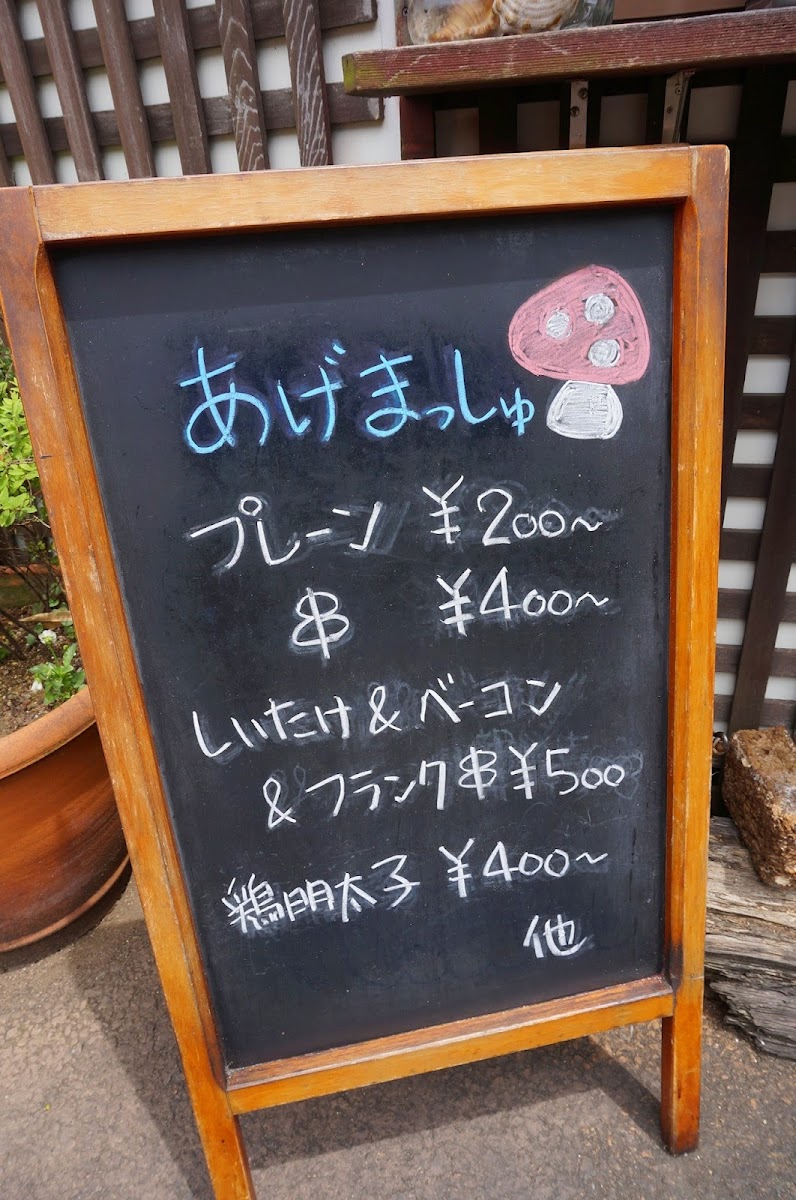 あげまっしゅ
プレーン ¥200~
串 ¥400~
しいたけ&ベーコン
&フランク串¥500
鶏明太子 ¥400~
他